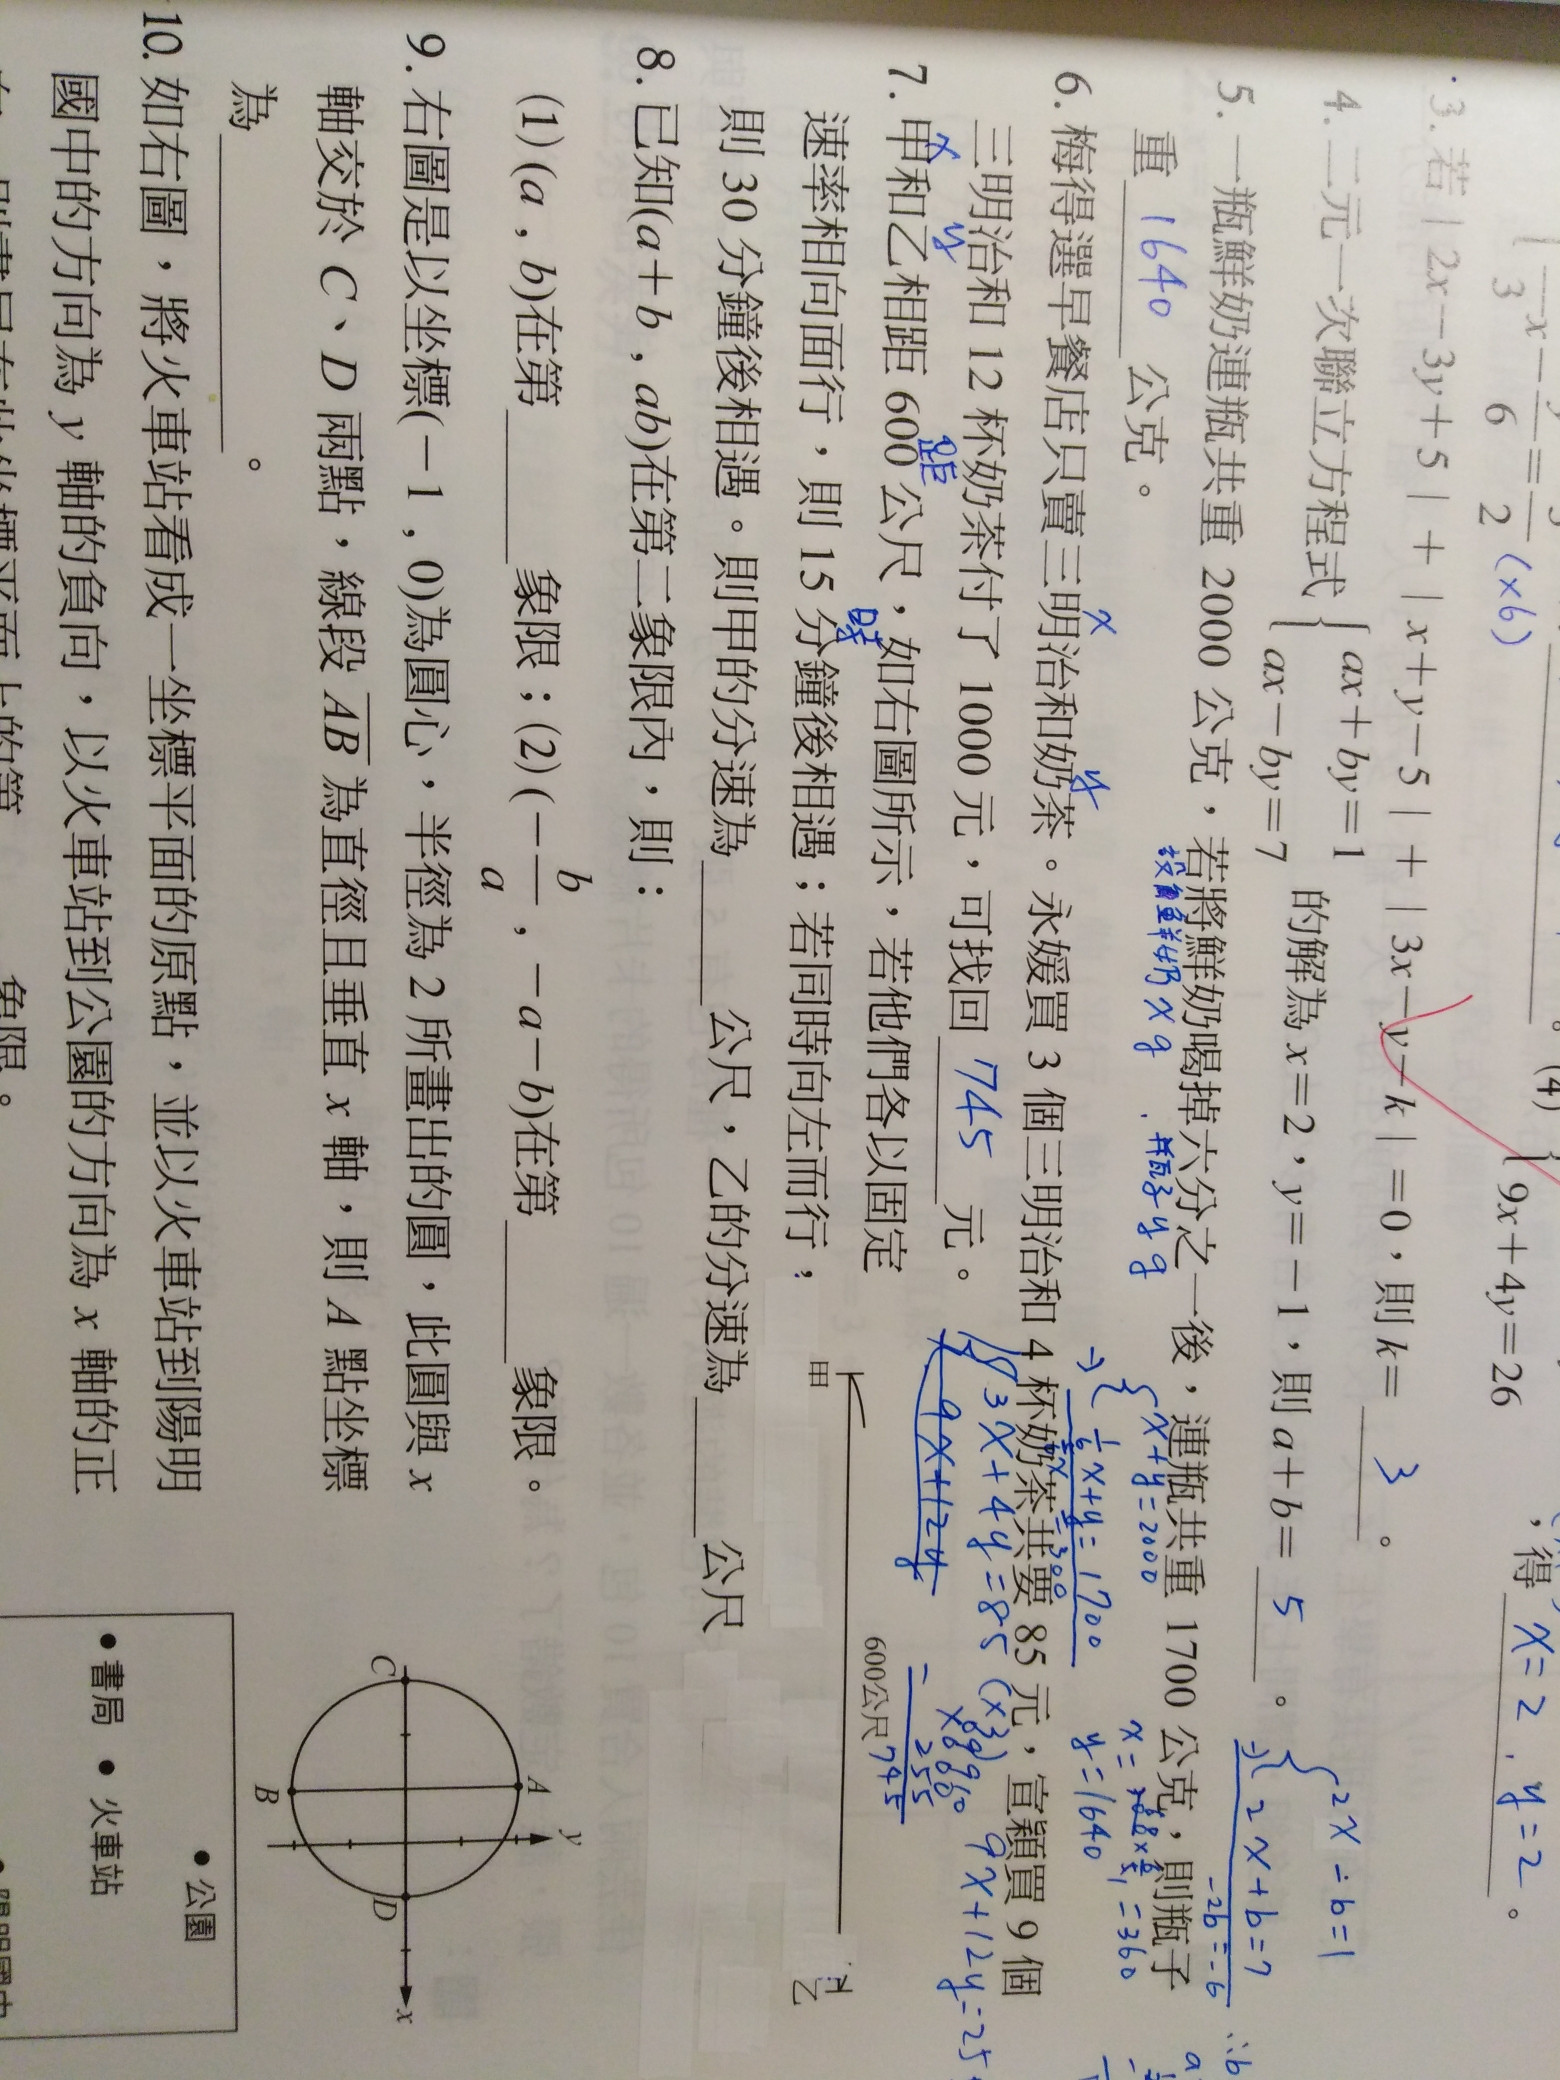 3 6 2 (×6)
(4) { 9x+4y=26
,得 x=2,y=2。
3.若|2x-3y+5|+|x+y-5|+|3x-y-k|=0,則k= 3 。
4.二元一次聯立方程式{ ax+by=1
ax-by=7 的解為x=2,y=-1,則a+b= 5 。
2x-b=1
-) 2x+b=7
-2b=-6
∴b
5.一瓶鮮奶連瓶共重2000公克,若將鮮奶喝掉六分之一後,連瓶共重1700公克,則瓶子
設鮮奶xg、瓶子yg
重 1640 公克。
x+y=2000
-) 1/6x+y=1700
=360
y=1640
6.梅得選早餐店只賣三明治和奶茶。永媛買3個三明治和4杯奶茶共要85元,宣穎買9個
x y
三明治和12杯奶茶付了1000元,可找回 745 元。
3x+4y=85 (×3)
9x+12y
9x+12y=25
255
745
7.甲和乙相距600公尺,如右圖所示,若他們各以固定
x y 距 時
速率相向面行,則15分鐘後相遇;若同時向左而行,
則30分鐘後相遇。則甲的分速為 公尺,乙的分速為 公尺
甲 600公尺 乙
8.已知(a+b,ab)在第二象限內,則:
(1)(a,b)在第 象限;(2)(-b/a,-a-b)在第 象限。
9.右圖是以坐標(-1,0)為圓心,半徑為2所畫出的圓,此圓與x
軸交於C、D兩點,線段AB為直徑且垂直x軸,則A點坐標
為 。
A y
C D x
B
10.如右圖,將火車站看成一坐標平面的原點,並以火車站到陽明
國中的方向為y軸的負向,以火車站到公園的方向為x軸的正
象限。
•公園
•書局 •火車站